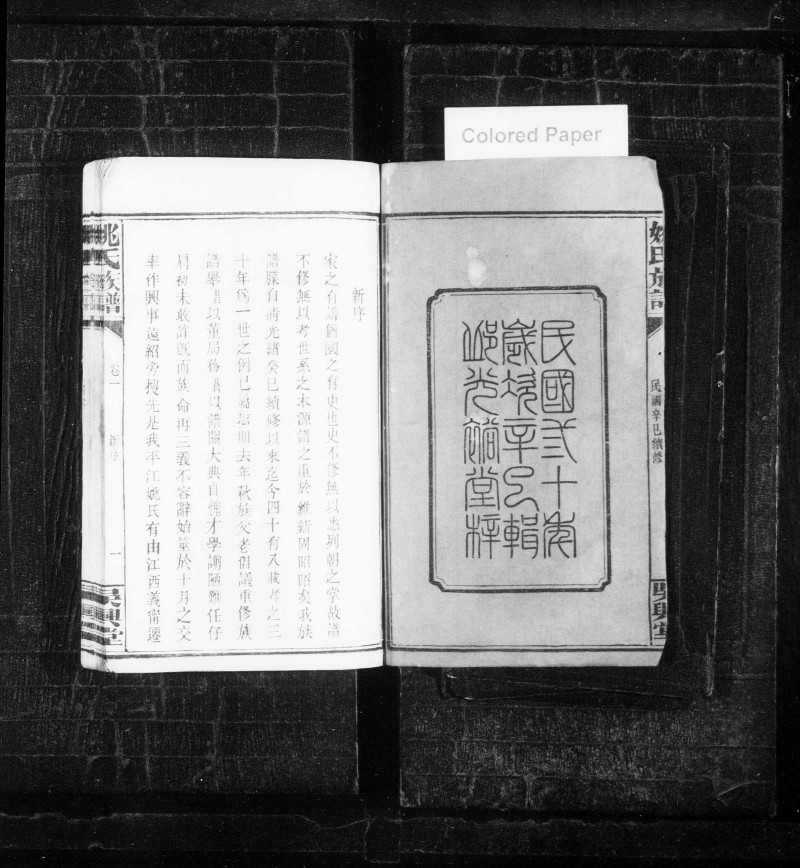 Colored Paper
姚氏族譜
民國辛巳續修
吳興堂
民國弎十年
歲次辛巳輯
光裕堂梓
新序
家之有譜猶國之有史也史不修無以悉列朝之掌故譜
不修無以考世系之本源譜之重於維新固昭昭矣我族
譜牒自淸光緒癸巳續修以來迄今四十有八載考之三
十年爲一世之例已屬愆期去年秋族父老倡議重修族
語舉以董局務以譜關大典自愧才學譾陋難任仔
肩初未敢許既而族命再三義不容辭始筮於十月之交
率作興事遠紹旁搜先是我平江姚氏有由江西義甯遷
姚氏族譜
卷一
新序
一
吳興堂